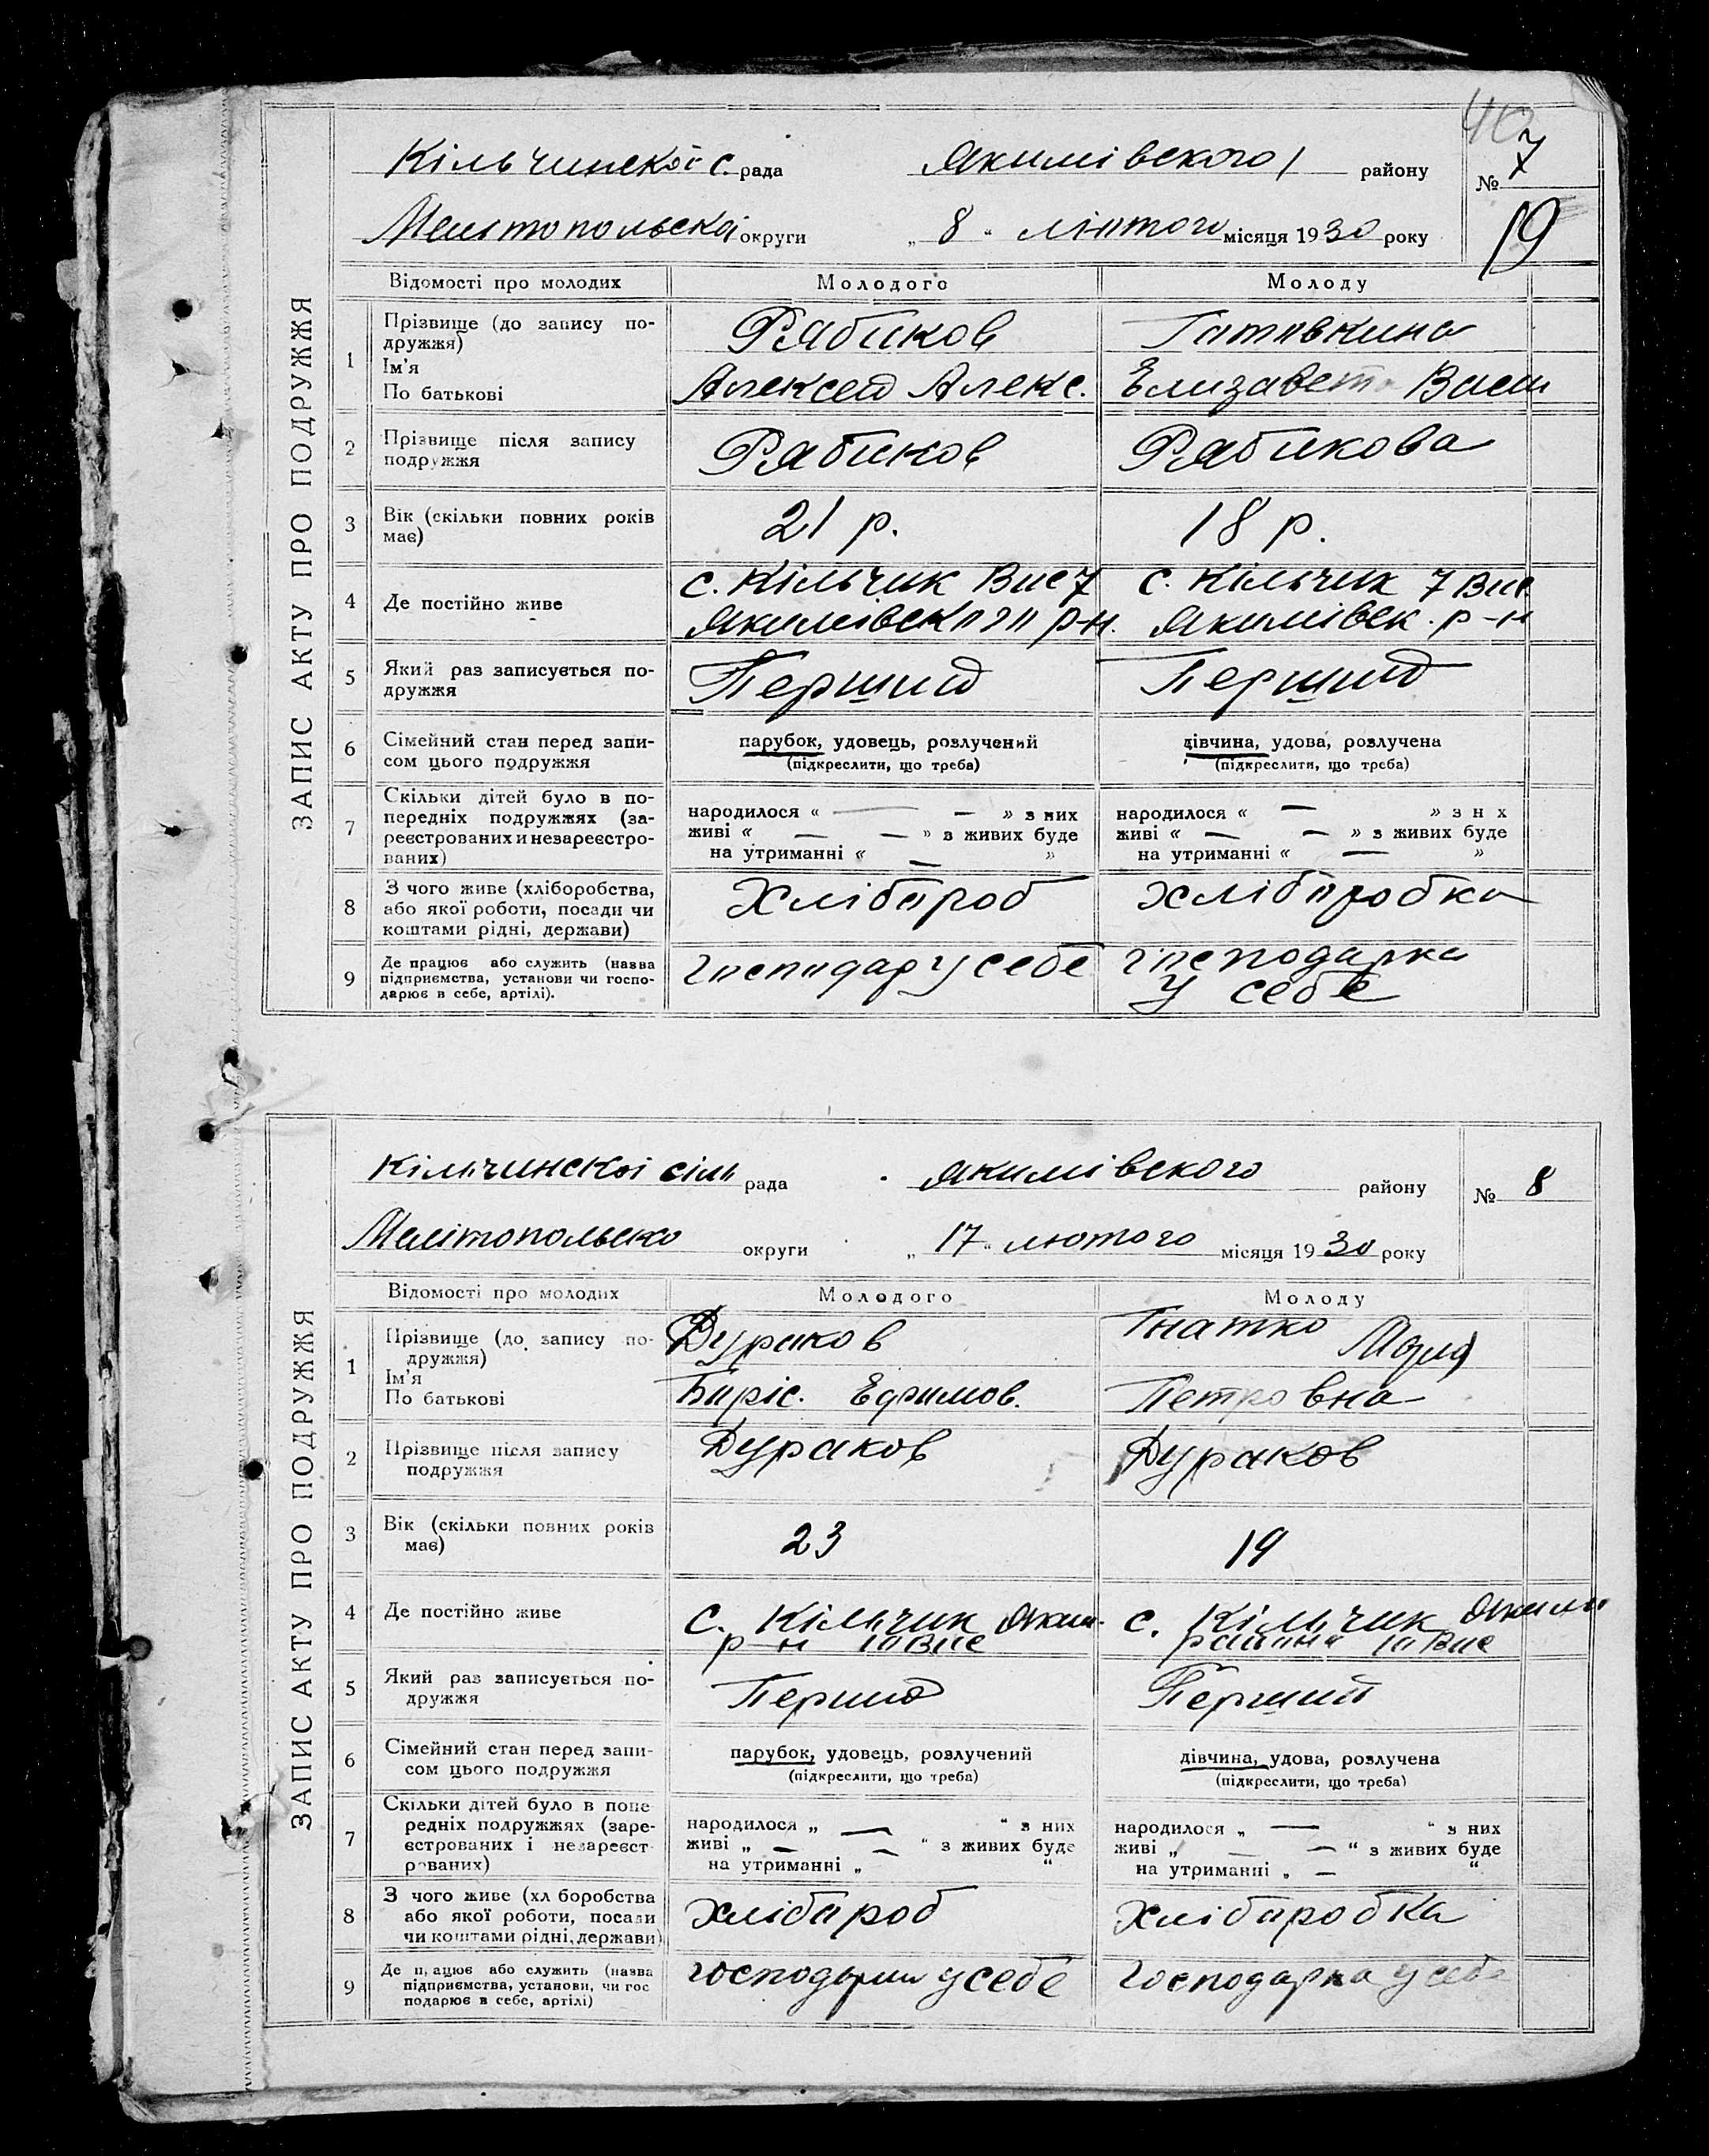 ЗАПИС АКТУ ПРО ПОДРУЖЖЯ
Кільчинской с. рада Якимівского району № 7
Мелітопольскоі округи „ 8 “ лютого місяця 1930 року 19
Відомості про молодих Молодого Молоду
1 Прізвище (до запису по-
дружжя) Рябиков
Ім'я
По батькові Алексей Алекс. Елизавета Васил
2 Прізвище після запису
подружжя Рябиков Рябикова
3 Вік (скільки повних років
має) 21 р. 18 р.
4 Де постійно живе с. Кільчик Вис 7 с. Кільчик 7 Вис.
Якимівского р-н. Якимівск. р-н
5 Який раз записується по-
дружжя Перший Перший
6 Сімейний стан перед запи-
сом цього подружжя парубок, удовець, розлучений дівчина, удова, розлучена
(підкреслити, що треба) (підкреслити, що треба)
7 Скільки дітей було в по-
передніх подружжях (за-
реєстрованих и незареєстро-
ваних) народилося « — — » з них народилося « — » з н х
живі « — — » з живих буде живі « — — » з живих буде
на утриманні « — » на утриманні « — »
8 З чого живе (хліборобства,
або якої роботи, посади чи
коштами рідні, держави) Хлібороб Хліборобка
9 Де працює або служить (назва
підприємства, установи чи госпо-
дарює в себе, артілі). Господар у себе Господарка
у себе
ЗАПИС АКТУ ПРО ПОДРУЖЖЯ
Кільчинскоі сіль рада Якимівского району № 8
Мелітопольско округи „ 17 “ лютого місяця 1930 року
Відомості про молодих Молодого Молоду
1 Прізвище (до запису по-
дружжя) Дураков Гнатко Марія
Ім'я
По батькові Боріс. Ефимов. Петровна
2 Прізвище після запису
подружжя Дураков Дураков
3 Вік (скільки повних років
має) 23 19
4 Де постійно живе с. Кільчик Яким. с. Кільчик Яким
р-н 10 Вис района 10 Вис
5 Який раз записується по-
дружжя Перший Перший
6 Сімейний стан перед запи-
сом цього подружжя парубок, удовець, розлучений дівчина, удова, розлучена
(підкреслити, що треба) (підкреслити, що треба)
7 Скільки дітей було в попе
редніх подружжях (заре-
єстрованих і незареєст-
рованих) народилося „ — “ з них народилося „ — “ з них
живі „ — — “ з живих буде живі „ — — “ з живих буде
на утриманні „ — “ на утриманні „ — “
8 З чого живе (хл боробства
або якої роботи, посади
чи коштами рідні, держави) Хлібороб Хліборобка
9 Де п ацює або служить (назва
підприємства, установи, чи гос
подарює в себе, артілі) у себе Господарка у себе